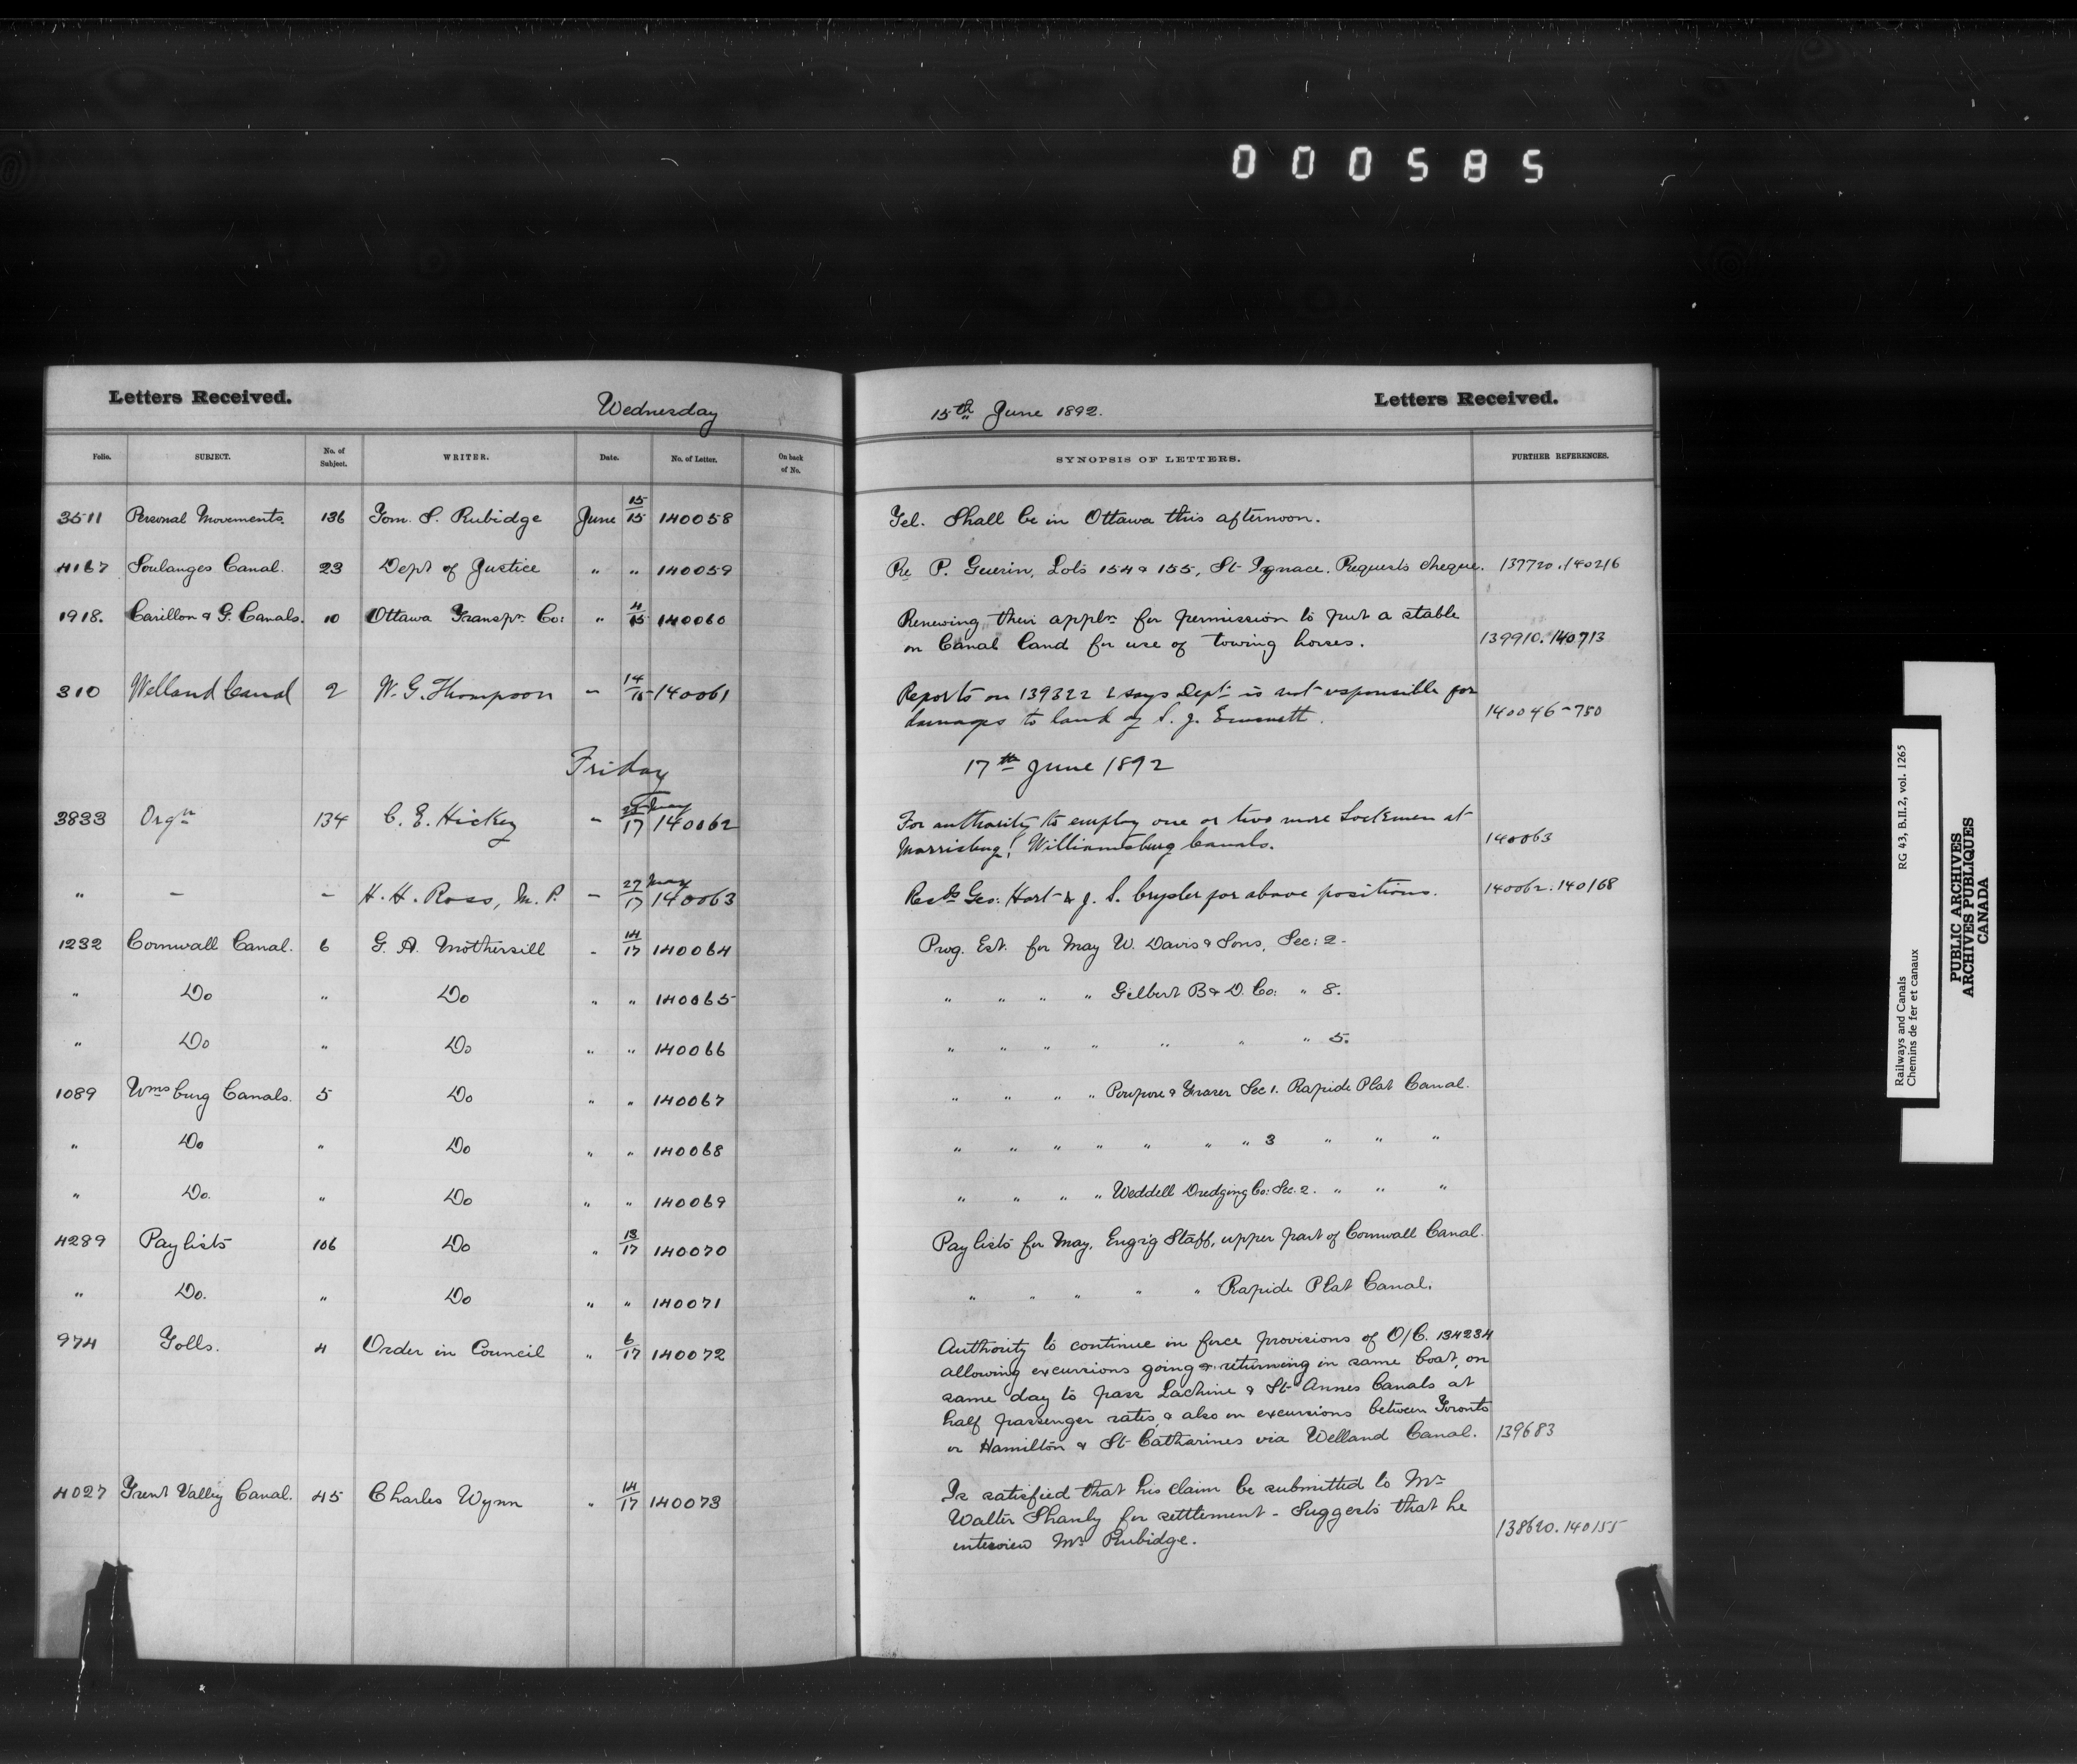 000585
Letters Received. Wednesday 15th June 1892. Letters Received.
Folio. SUBJECT. No. of Subject. WRITER. Date. No. of Letter. On back of No. SYNOPSIS OF LETTERS. FURTHER REFERENCES.
3511 Personal Movements. 136 Tom. S. Rubidge June 15/15 140058 Tel. Shall be in Ottawa this afternoon.
4167 Soulanges Canal. 23 Dept of Justice " " 140059 Re P. Guerin, Lots 154 & 155, St Ignace. Requests cheque. 137720.140216
1918. Carillon & G. Canals. 10 Ottawa Transpn Co: " 4/15 140060 Renewing their appln for permission to put a stable
on Canal land for use of towing horses. 139910.140713
310 Welland Canal 2 W. G. Thompson " 14/15 140061 Reports on 139322 & says Dept is not responsible for
damages to land of S. J. Emmett. 140046-750
Friday 17th June 1892
3833 Orgn 134 C. E. Hickey " May/17 140062 For authority to employ one or two more Lockmen at
Morrisburg, Williamsburg Canals. 140063
" - - H. H. Ross, M.P. - 27 May/17 140063 Recds Geo: Hart & J. S. Crysler for above positions. 140062.140168
1232 Cornwall Canal. 6 G. A. Mothersill - 14/17 140064 Prog. Est. for May W. Davis & Sons, Sec: 2-
" Do " Do " " 140065 " " " " Gilbert B & D. Co: " 8.
" Do " Do " " 140066 " " " " " " " 5.
1089 Wmsburg Canals. 5 Do " " 140067 " " " " Poupore & Fraser Sec 1. Rapide Plat Canal.
" Do " Do " " 140068 " " " " " " " 3 " " "
" Do. " Do " " 140069 " " " " Weddell Dredging Co: Sec. 2. " " "
4289 Paylists 106 Do " 13/17 140070 Paylists for May, Engig Staff, upper part of Cornwall Canal.
" Do. " Do " " 140071 " " " " " Rapide Plat Canal.
974 Tolls. 4 Order in Council " 6/17 140072 Authority to continue in force provisions of O/C. 134234
allowing excursions going & returning in same boat, on
same day to pass Lachine & St Annes Canals at
half passenger rates, & also on excursions between Toronto
or Hamilton & St Catharines via Welland Canal. 139683
4027 Trent Valley Canal. 45 Charles Wynn " 14/17 140073 Is satisfied that his claim be submitted to Mr
Walter Shanly for settlement - Suggests that he
interview Mr Rubidge. 138620.140155
Railways and Canals RG 43, B.II.2, vol. 1265
Chemins de fer et canaux
PUBLIC ARCHIVES
ARCHIVES PUBLIQUES
CANADA